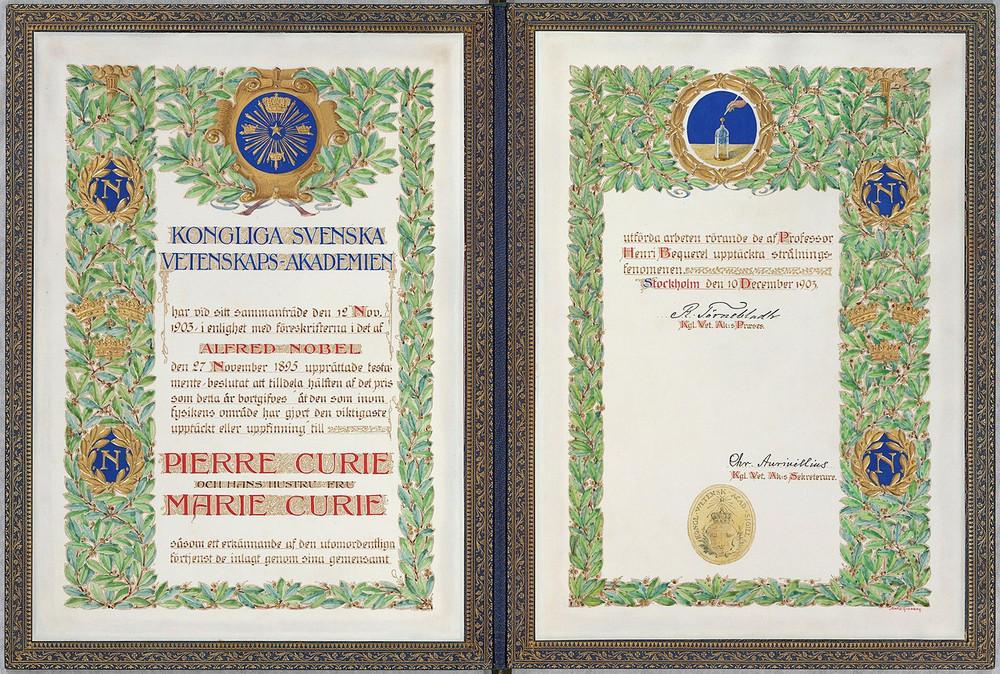 N
N
KONGLIGA SVENSKA
VETENSKAPS-AKADEMIEN
har vid sitt sammanträde den 12 Nov.
1903, i enlighet med föreskrifterna i det af
ALFRED NOBEL
den 27 November 1895 upprättade testa-
mente, beslutat att tilldela hälften af det pris
som detta år bortgifves åt den som inom
fysikens område har gjort den viktigaste
upptäckt eller uppfinning till
PIERRE CURIE
OCH HANS HUSTRU FRU
MARIE CURIE
såsom ett erkännande af den utomordentliga
förtjenst de inlagt genom sina gemensamt
N
N
utförda arbeten rörande de af Professor
Henri Bequerel upptäckta strålnings-
fenomenen
Stockholm den 10 December 1903.
R. Törnebladh
Kgl. Vet. Ak:s Præses.
Chr. Aurivillius
Kgl. Vet. Ak:s Sekreterare.